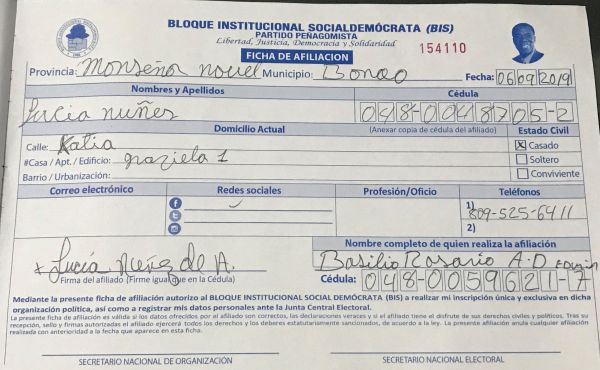 BLOQUE INSTITUCIONAL SOCIALDEMÓCRATA (BIS)
PARTIDO PEÑAGOMISTA
Libertad, Justicia, Democracia y Solidaridad
154110
FICHA DE AFILIACION
Provincia: Monseñor Nouel Municipio: Bonao Fecha: 06/09/2019
Nombres y Apellidos Cédula
Lucia nuñes 048-0048705-2
Domicilio Actual (Anexar copia de cédula del afiliado) Estado Civil
Calle: Katia X Casado
#Casa / Apt. / Edificio: graziela 1 Soltero
Barrio / Urbanización: Conviviente
Correo electrónico Redes sociales Profesión/Oficio Teléfonos
1) 809-525-6411
2)
Nombre completo de quien realiza la afiliación
x Lucía Nuñez de A. Basilio Rosario A.D
Firma del afiliado (Firme igual que en la Cédula) Cédula: 048-0059621-7
Mediante la presente ficha de afiliación autorizo al BLOQUE INSTITUCIONAL SOCIAL DEMÓCRATA (BIS) a realizar mi inscripción única y exclusiva en dicha
organización política, así como a registrar mis datos personales ante la Junta Central Electoral.
La presente ficha de afiliación es válida si los datos ofrecidos por el afiliado son correctos, las declaraciones veraces y si el afiliado tiene el disfrute de sus derechos civiles y políticos. Tras su
recepción, sello y firmas autorizadas el afiliado ejercerá todos los derechos y los deberes estatutariamente sancionados, de acuerdo a la ley. La presente afiliación anula cualquier afiliación
realizada con anterioridad a la fecha que aparece en esta ficha.
SECRETARIO NACIONAL DE ORGANIZACIÓN SECRETARIO NACIONAL ELECTORAL